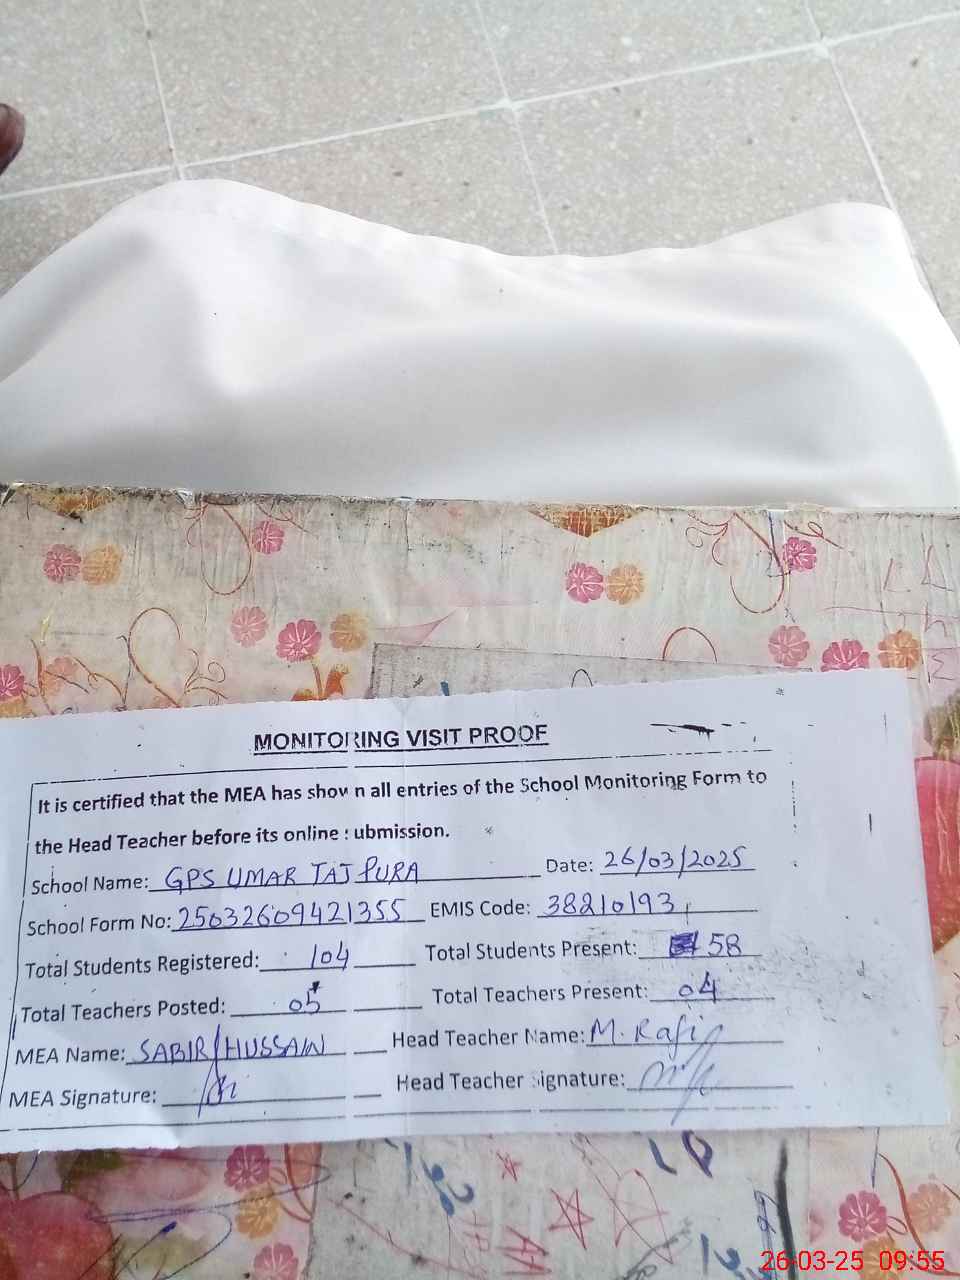 MONITORING VISIT PROOF
It is certified that the MEA has shown all entries of the School Monitoring Form to
the Head Teacher before its online submission.
School Name: GPS UMAR TAJ PURA Date: 26/03/2025
School Form No: 25032609421355 EMIS Code: 38210193
Total Students Registered: 104 Total Students Present: 58
Total Teachers Posted: 05 Total Teachers Present: 04
MEA Name: SABIR HUSSAIN Head Teacher Name: M. Rafiq
MEA Signature: Head Teacher Signature:
26-03-25 09:55